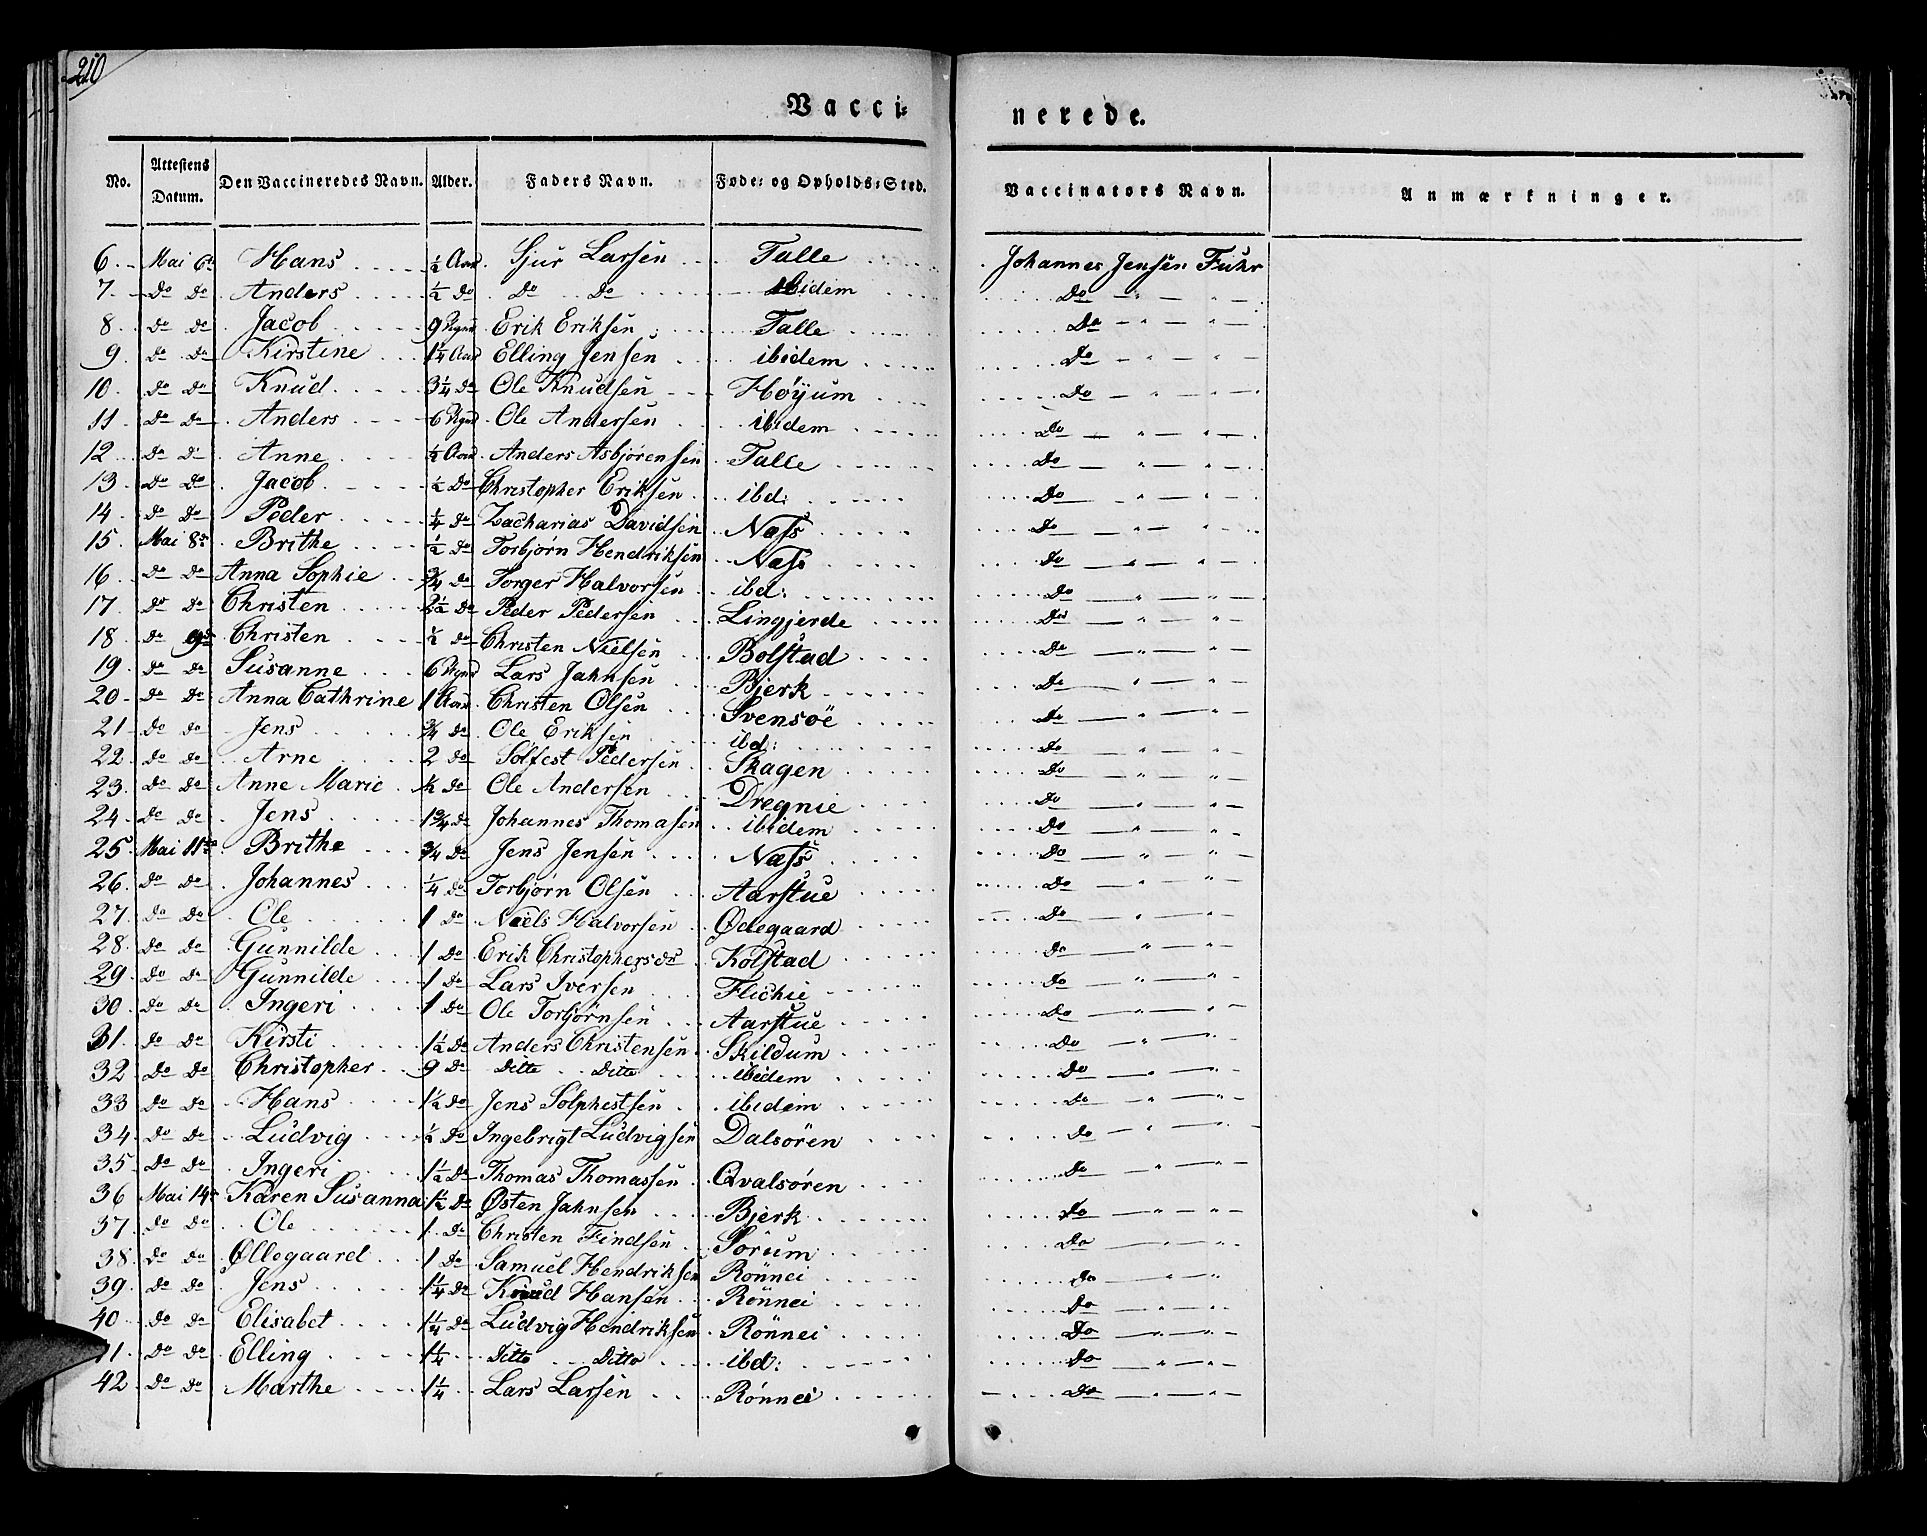 210
Vacci= nerede.
No. Attestens Datum. Den Vaccineredes Navn. Alder. Faders Navn. Føde= og Opholds=Sted. Vaccinators Navn. Anmærkninger.
6. Mai 6te Hans ½ Aar Sjur Larsen Talle Johannes Jensen Fuhr
7. Do Do Anders ½ Do Do Do ibidem Do
8. Do Do Jacob 9 Ugur Erik Eriksen Talle Do
9. Do Do Kirstine 1¼ Aar Elling Jensen ibidem Do
10. Do Do Knud 3¼ Do Ole Knudsen Høÿum Do
11. Do Do Anders 6 Ugur Ole Andersen ibidem Do
12. Do Do Anne Aar Anders Asbjørensen Talle Do
13. Do Do Jacob ½ Do Christopher Eriksen ibd: Do
14. Do Do Peder ¼ Do Zacharias Davidsen Næss Do
15. Mai 8de Brithe ½ Do Torbjørn Hendriksen Næss Do
16. Do Do Anna Sophie ¾ Do Torger Halvorsen ibd: Do
17. Do Do Christen 2½ Do Peder Pedersen Lingjerde Do
18 Do 9de Christen ½ Do Christen Nielsen Bolstad Do
19. Do Do Susanne 6 Ugur Lars Jahnsen Bjerk Do
20. Do Do Anna Cathrine 1 Aar Christen Olsen Svensöe Do
21. Do Do Jens ¾ Do Ole Eriksen ibd: Do
22. Do Do Arne 2 Do Solfest Pedersen Skagen Do
23. Do Do Anne Marie ½ Do Ole Andersen Dregnie Do
24. Do Do Jens 1¾ Do Johannes Thomasen ibidem Do
25. Mai 11te Brithe ¾ Do Jens Jensen Næss Do
26. Do Do Johannes ¼ Do Torbjørn Olsen Aarstue Do
27. Do Do Ole 1 Do Niels Halvorsen Ødegaard Do
28. Do Do Gunnilde 1 Do Erik Christophersen Kolstad Do
29. Do Do Gunnilde 1 Do Lars Iversen Flichie Do
30. Do Do Ingeri 1 Do Ole Torbjörnsen Aarstue Do
31. Do Do Kirsti 1½ Do Anders Christensen Skildum Do
32 Do Do Christopher 9 Do Ditto Ditto ibidem Do
33 Do Do Hans 1½ Do Jens Solphestsen ibidem Do
34. Do Do Ludvig ½ Do Ingebrigt Ludvigsen Dalsören Do
35. Do Do Ingeri 1½ Do Thomas Thomassen Qvalsören Do
36 Mai 14de Karen Susanna 1½ Do Østen Jahnsen Bjerk Do
37. Do Do Ole 1. Do Christen Findsen Sorum Do
38. Do Do Øllegaard 1 Do Samuel Hendriksen Rönnei Do
39. Do Do Jens 1¼ Do Knud Hansen Rönnei Do
40. Do Do Elisabet 1¼ Do Ludvig Hendriksen Rönnei Do
41. Do Do Elling 1¼ Ditto Ditto ibd: Do
42. Do Do Marthe 1¼ Lars Larsen Rönnei Do